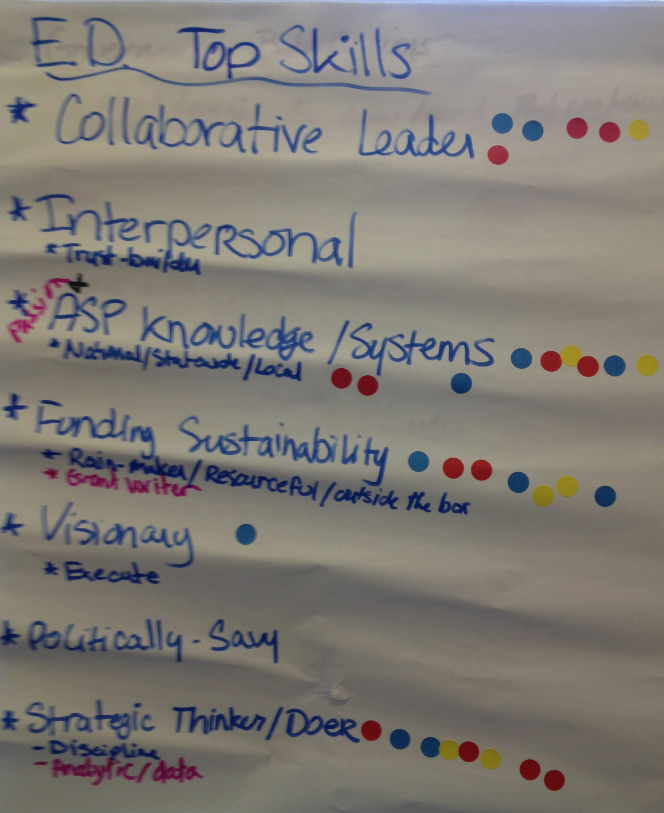 E.D. Top Skills
* Collaborative Leader
* Interpersonal
* Trust-builder
* Passion + ASP Knowledge/Systems
* National/Statewide/Local
* Funding Sustainability
* Rain-maker/Resourceful/outside the box
* Grant writer
* Visionary
* Execute
* Politically-Savy
* Strategic Thinker/Doer
- Discipline
- Analytic/data